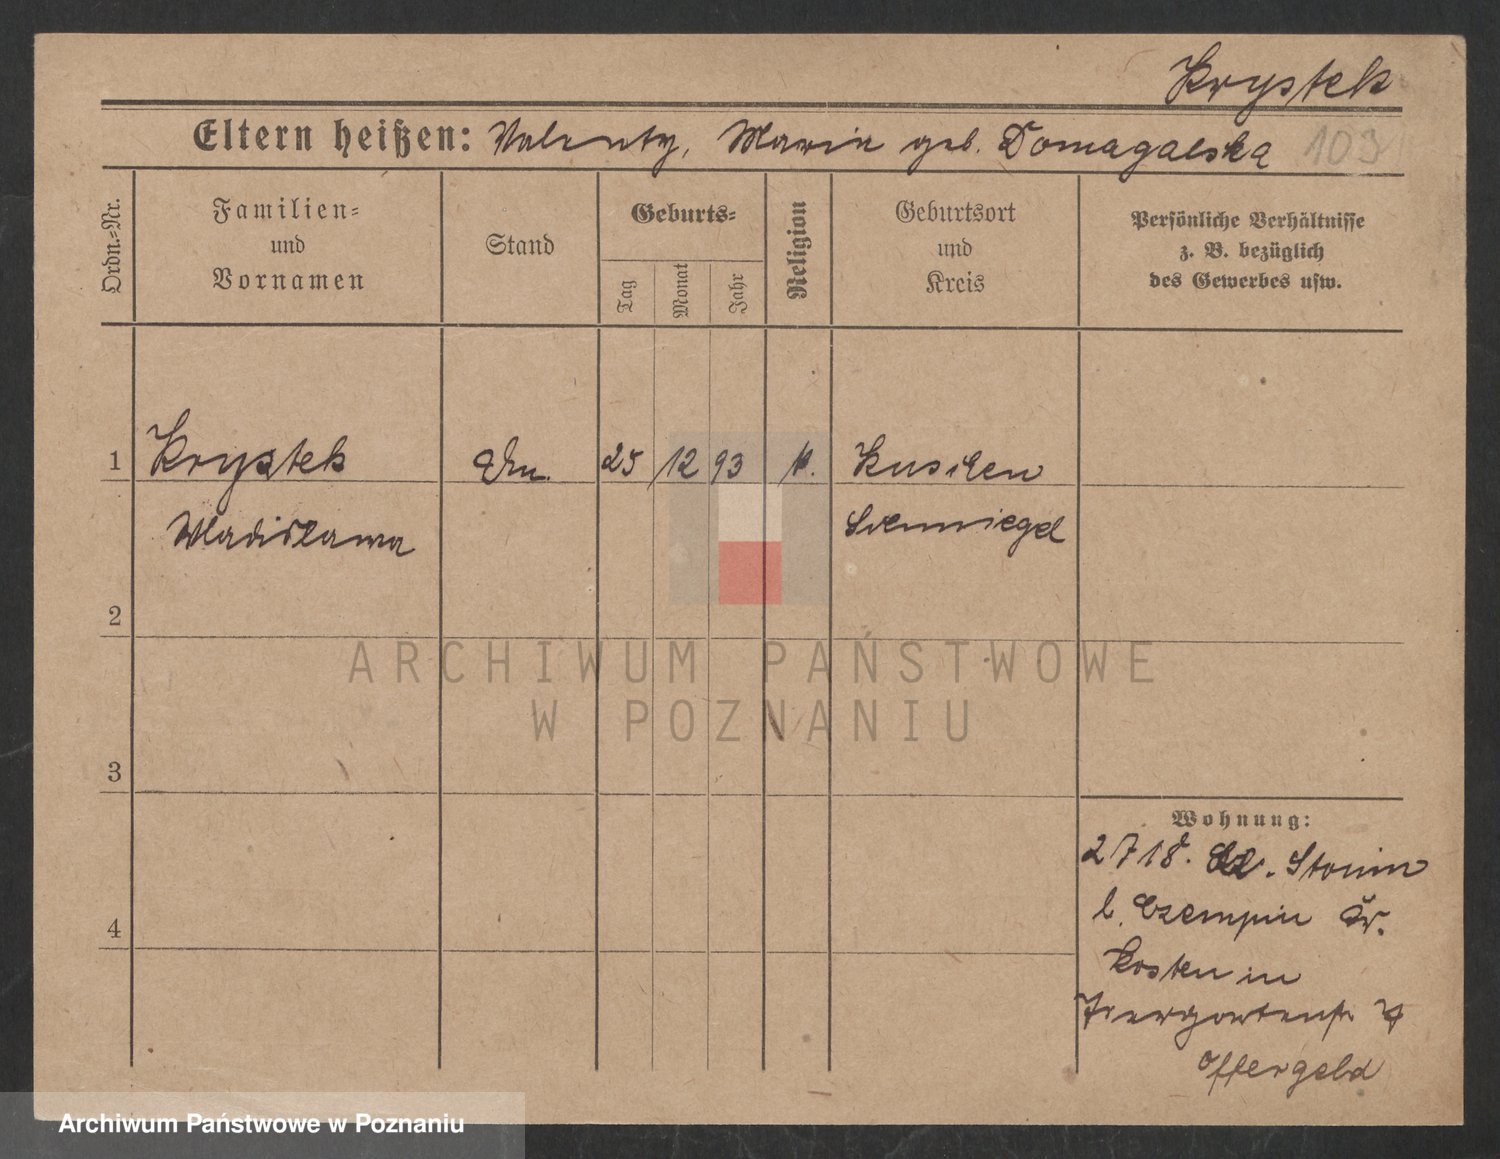 Krystek
Eltern heißen: Valenty, Maria geb. Domagalska 103
Ordn.=Nr.
Familien=
und
Vornamen
Stand
Geburts=
Tag
Monat
Jahr
Religion
Geburtsort
und
Kreis
Persönliche Verhältnisse
z. B. bezüglich
des Gewerbes usw.
1 Krystek 25 12 93 k. Kuschen
Wladislawa Schmiegel
2
3
4
Wohnung:
2718. Stonin
b. Czempin Kr.
Kosten in
Tiergartenstr. 4
Offergeld
ARCHIWUM PAŃSTWOWE
W POZNANIU
Archiwum Państwowe w Poznaniu